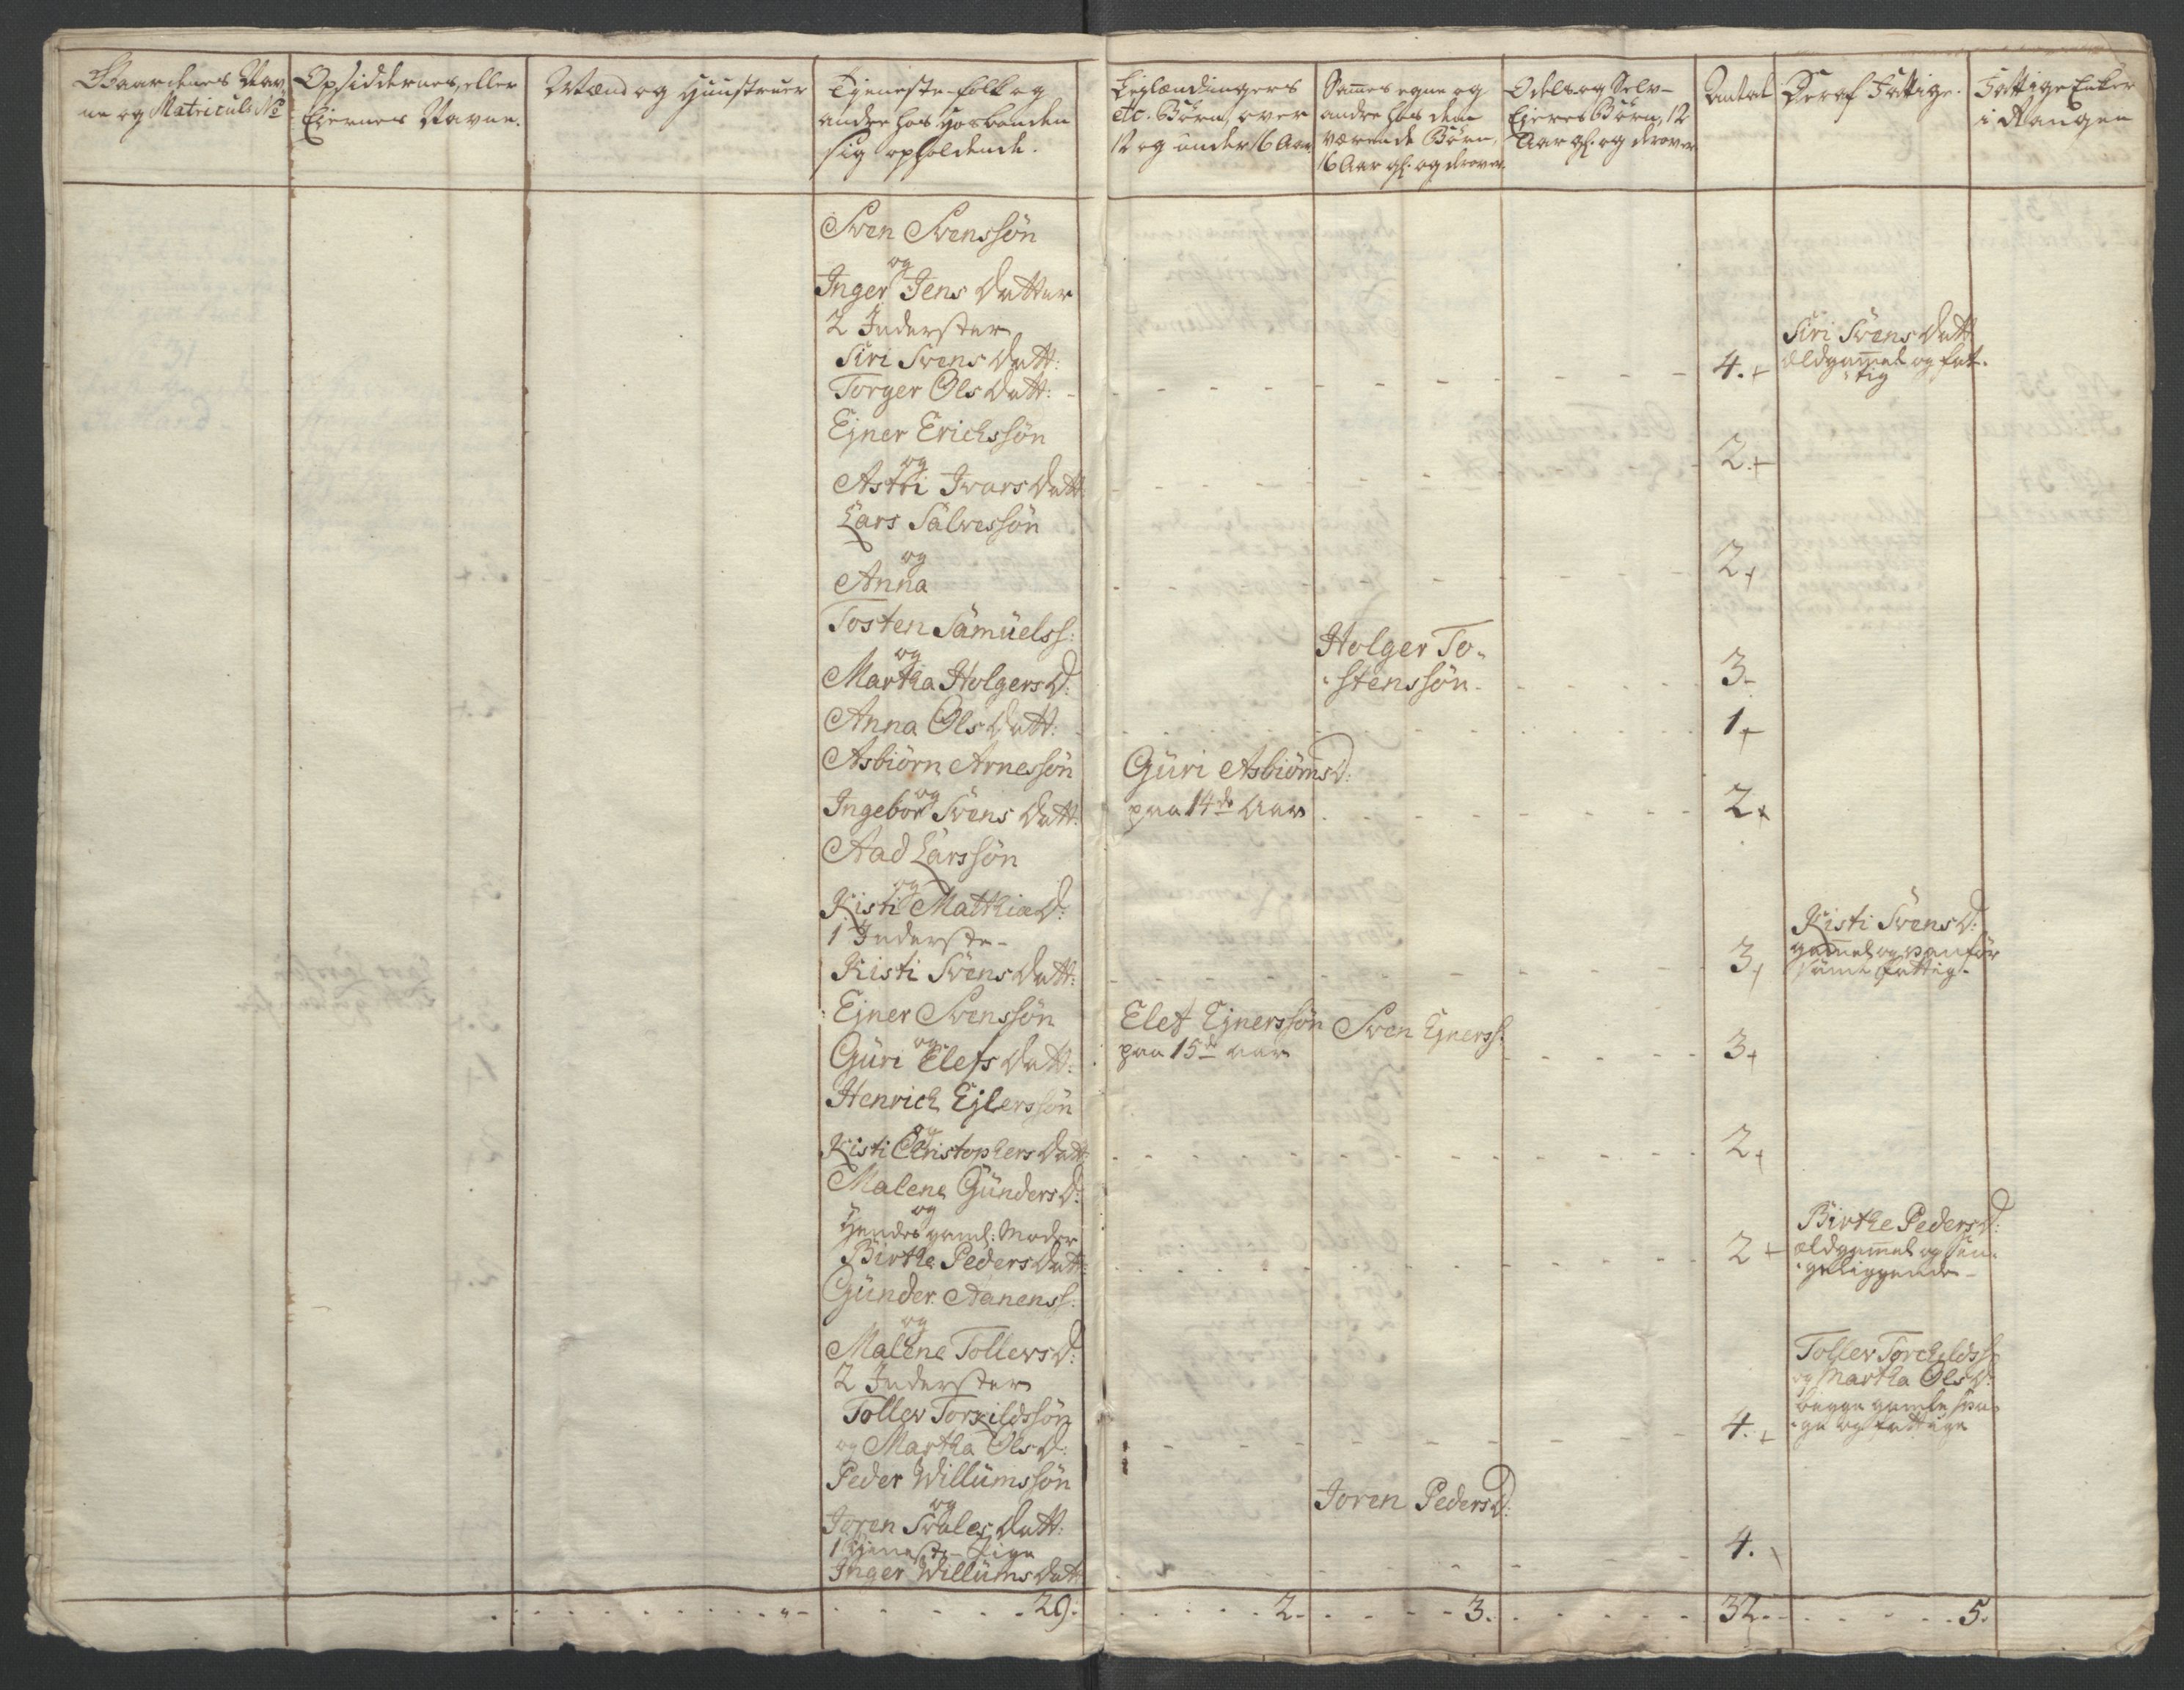 Gaardenes Nav-
ne og Matriculs No
Opsiddernes, eller
Ejernes Navne.
Mænd og Hustruer
Tjeneste-folk og
andre hos
sig opholdende.
Lejlændingers
etc. Börn, over
12 og under 16 Aar
Sam̄es egne og
andre hos dem
værende Börn,
16 Aar gl. og derover.
Odels og Selv-
Ejeres Börn, 12
Aar gl. og derover
Antal
Deraf Fattige.
Fattige Enker
i Rangen
Sven Svenssön
og
Inger Jens Datter
2 Inderster
Siri Svens Datt:
Torger Ols Datt:
4.
Siri Svens Datt
Eldgam̄el og fat-
tig
Ejner Erichssön
og
Astri Ivars Datt
2.
Lars Salvessön
og
Anna
2
Tosten Samuelss:
og
Martha Holgers D:
Holger To-
stenssön
3
Anna Ols Datt:
1
Asbiörn Arnessön
og
Ingebor Svens Datt:
Guri Asbiörns D:
paa 14de Aar
2
Aad Larssön
og
Kisti Mathia D:
1 Inderste
Kisti Svens Datt:
3
Kisti Svens D:
gam̄el og vanför
samt fattig
Ejner Svenssön
og
Guri Elefs Datt:
Elef Ejnerssön
paa 15de Aar
Sven Ejnerss:
3
Henrich Ejlerssön
og
Kisti Christophers Datt
2
Malene Gunders D:
og
Hendes gaml: Moder
Birthe Peders Datt:
2
Birthe Peders D:
eldgam̄el og sen-
geliggende
Gunder Aanenss:
og
Malene Tollevs D:
2 Inderster
Tollev Torkildssön
og Martha Ols D:
4.
Tollev Torchildss
og Martha Ols D:
begge gamle sva-
ge og fattige
Peder Willumssön
og
Joren Svales Datt:
1 Tjeneste-Pige
Inger Willums Datt
Joren Peders D:
4.
29.
2.
3.
32.
5.